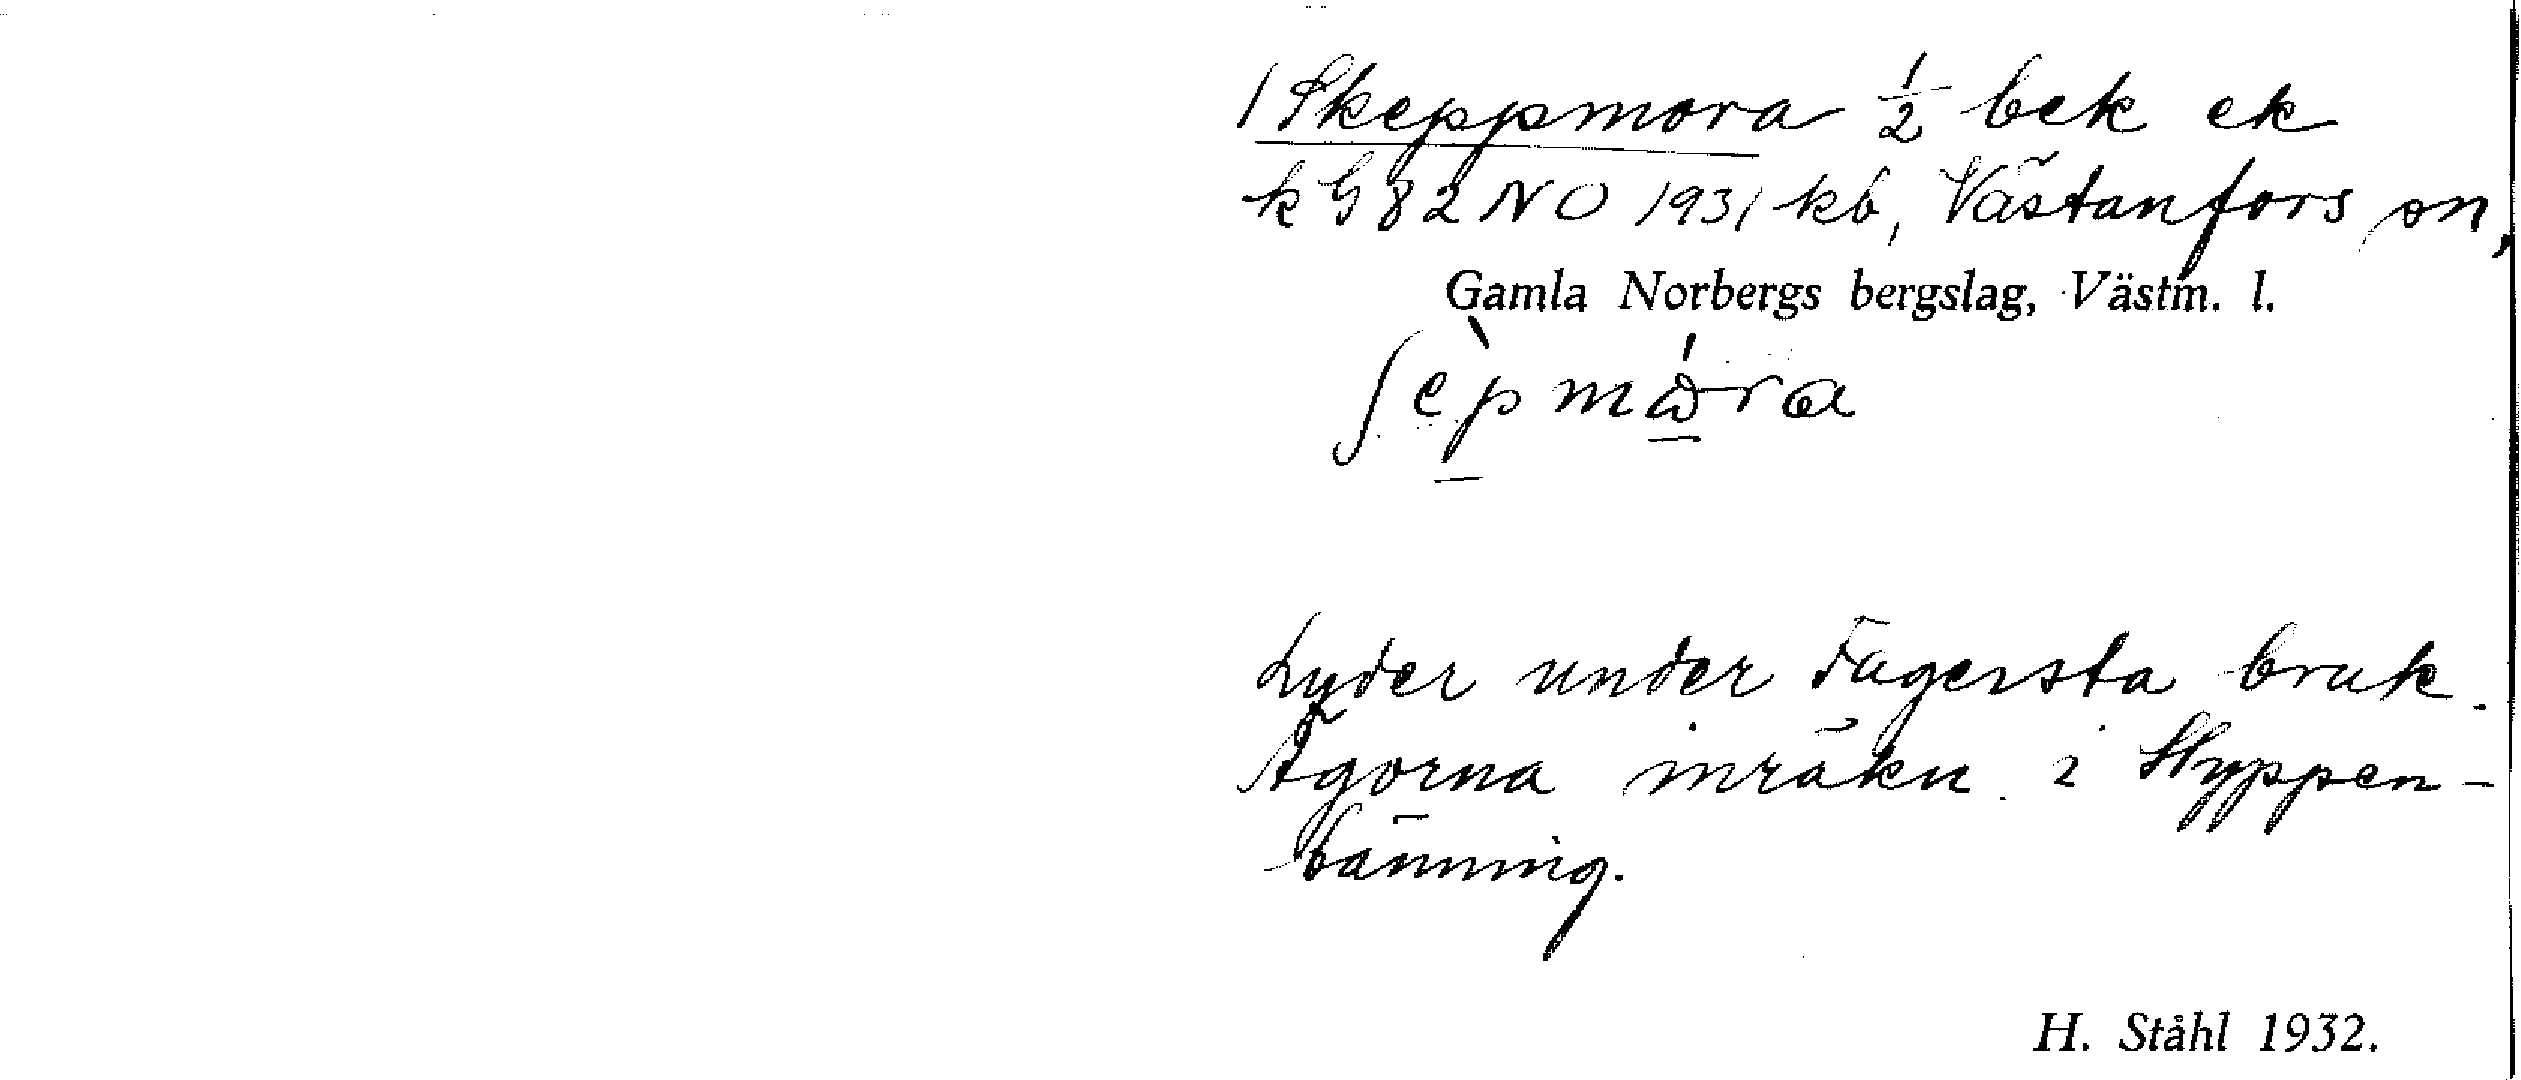 / Skeppmora ½ bek ek
k G 82 NO 1931 kb, Västanfors sn,
Gamla Norbergs bergslag, Västm. l.
ʃèpmɷ́ra
Lyder under Fagersta bruk.
Ägorna inräkn. i Hyppen-
bänning.
H. Ståhl 1932.